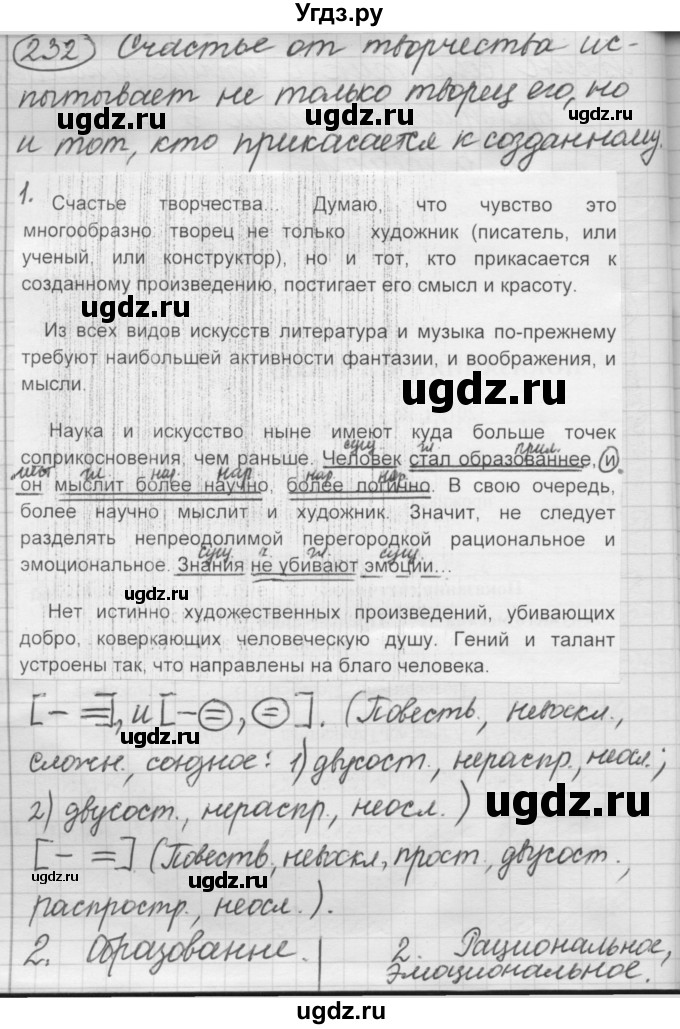 Угдз.ру
232 Счастье от творчества ис-
пытывает не только творец его, но
ugdz.ru ugdz.ru
и тот, кто прикасается к созданному.
1.
Счастье творчества... Думаю, что чувство это
многообразно творец не только художник (писатель, или
ученый, или конструктор), но и тот, кто прикасается к
созданному произведению, постигает его смысл и красоту.
ugdz.ru
Из всех видов искусств литература и музыка по-прежнему
требуют наибольшей активности фантазии, и воображения, и
мысли.
ugdz.ru
Наука и искусство ныне имеют куда больше точек
сущ. гл. прил.
соприкосновения, чем раньше. Человек стал образованнее, и
мест. гл. нар. нар. нар. нар.
он мыслит более научно, более логично. В свою очередь,
ugdz.ru ugdz.ru
более научно мыслит и художник. Значит, не следует
разделять непреодолимой перегородкой рациональное и
сущ. ч. гл. сущ.
эмоциональное. Знания не убивают эмоции...
ugdz.ru
Нет истинно художественных произведений, убивающих
добро, коверкающих человеческую душу. Гений и талант
устроены так, что направлены на благо человека.
[– =], и [– =, =]. (Повесть, невоскл.,
ugdz.ru
сложн., союзное: 1) двусост., нераспр., неосл.;
2) двусост., нераспр., неосл.)
ugdz.ru
[– =] (Повеств, невоскл, прост, двусост.,
ugdz.ru ugdz.ru
распростр., неосл.).
2. Образование. 2. Рациональное,
эмоциональное.
ugdz.ru